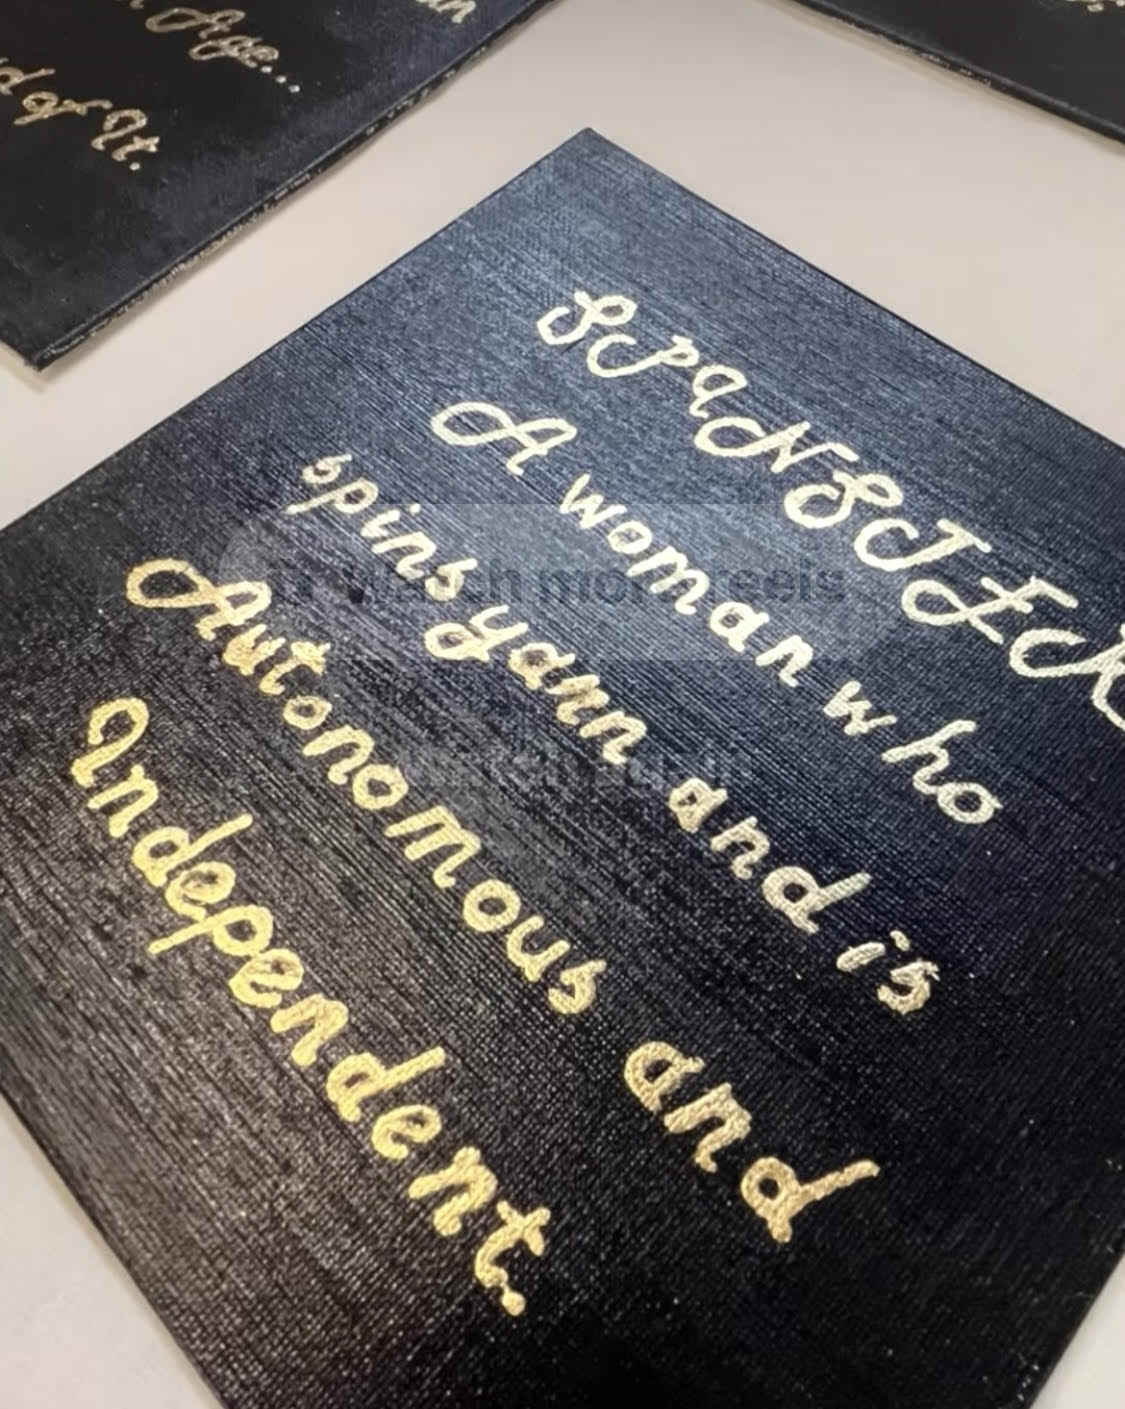 Age...
of It.
SPaNSTER
A woman who
spins yarn and is
Autonomous and
Independent.
Watch more reels